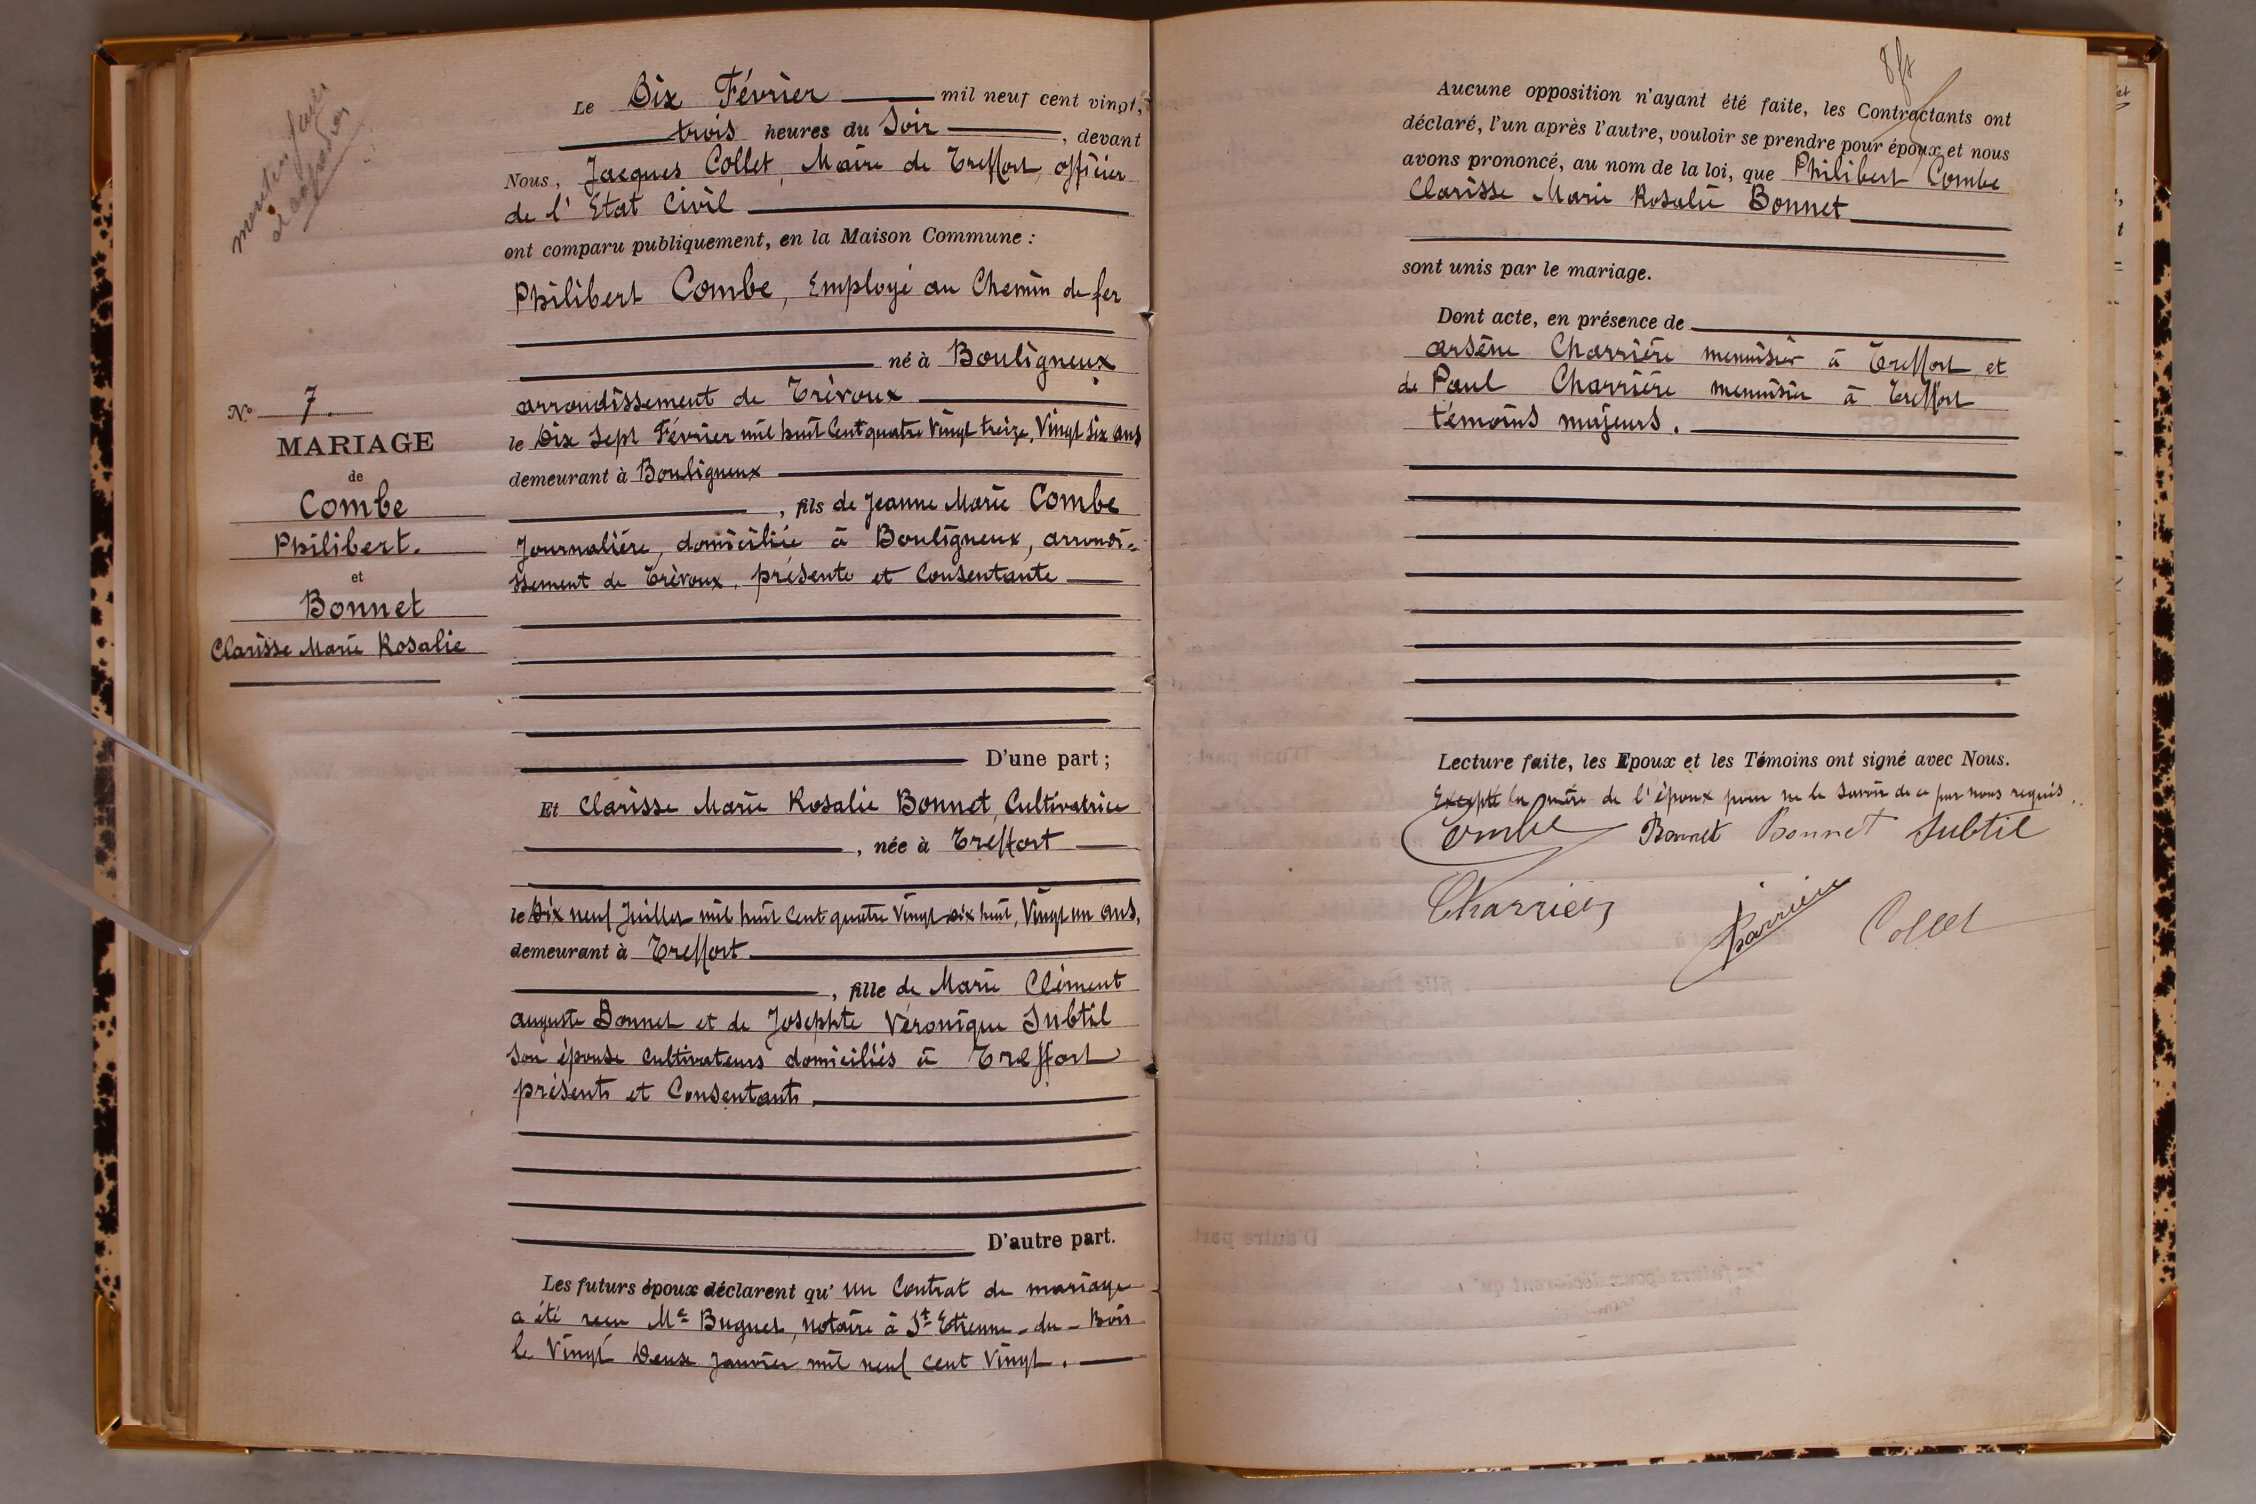 mention faite
d'expédition
N° 7.
MARIAGE
de
Combe
Philibert.
et
Bonnet
Clarisse Marie Rosalie
Le Dix Février mil neuf cent vingt,
trois heures du Soir, devant
Nous, Jacques Collet, Maire de Treffort, officier
de l'Etat Civil
ont comparu publiquement, en la Maison Commune :
Philibert Combe, Employé au Chemin de fer
né à Bouligneux
arrondissement de Trévoux
le Dix Sept Février mil huit Cent quatre Vingt treize, Vingt six ans
demeurant à Bouligneux
, fils de Jeanne Marie Combe
Journalière, domiciliée à Bouligneux, arrondi-
ssement de Trévoux, présente et Consentante
D'une part ;
Et Clarisse Marie Rosalie Bonnet, Cultivatrice
, née à Treffort
le Dix neuf Juillet mil huit Cent quatre Vingt dix huit, Vingt un ans,
demeurant à Treffort
, fille de Marie Clément
auguste Bonnet et de Josephte Véronique Subtil
Son épouse Cultivateurs domiciliés à Treffort
présents et Consentants.
D'autre part.
Les futurs époux déclarent qu'un Contrat de mariage
a été recu Me Buguet, notaire à St Etienne-du-Bois
le Vingt Deux Janvier mil neuf cent Vingt.
Aucune opposition n'ayant été faite, les Contractants ont
déclaré, l'un après l'autre, vouloir se prendre pour époux et nous
avons prononcé, au nom de la loi, que Philibert Combe
Clarisse Marie Rosalie Bonnet
sont unis par le mariage.
Dont acte, en présence de
arsène Charrière menuisier à Treffort et
de Paul Charrière menuisier à Treffort
témoins majeurs.
Lecture faite, les Epoux et les Témoins ont signé avec Nous.
Excepté la mère de l'époux pour ne le Savoir de ce par nous requis.
Combe Bonnet Bonnet Subtil
Charrière Charrière Collet